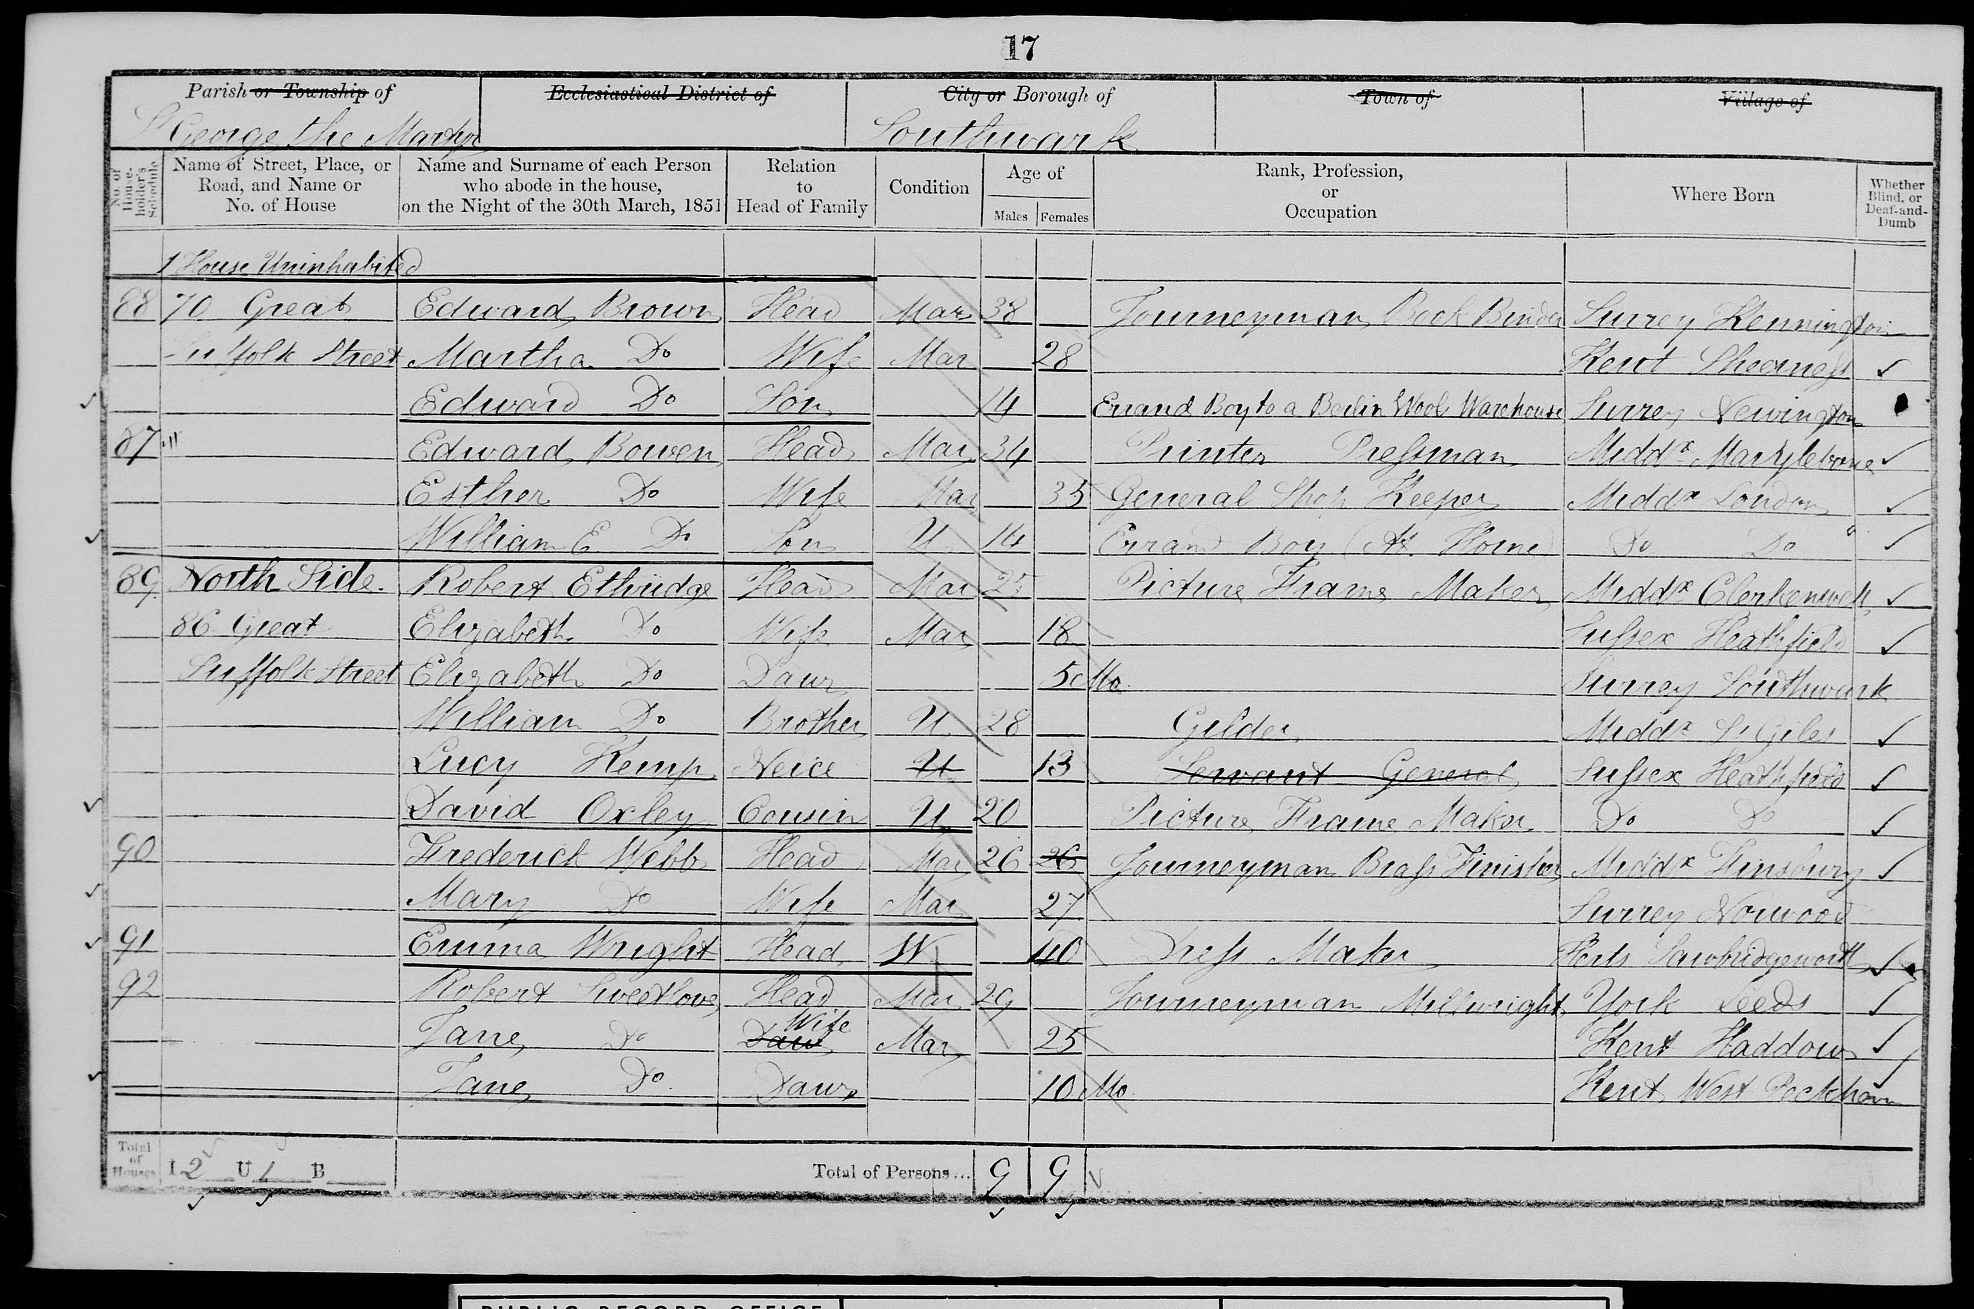 17
Parish or Township of Ecclesiastical District of City or Borough of Town of Village of
St George the Martyr Southwark
No. of House-holder's Schedule Name of Street, Place, or Road, and Name or No. of House Name and Surname of each Person who abode in the house, on the Night of the 30th March, 1851 Relation to Head of Family Condition Age of Males Females Rank, Profession, or Occupation Where Born Whether Blind, or Deaf-and-Dumb
1 House Uninhabited
88 70 Great Edward Brown Head Mar 38 Journeyman Book Binder Surrey Kennington
Suffolk Street Martha Do Wife Mar 28 Kent Sheerness
Edward Do Son 14 Errand Boy to a Berlin Wool Warehouse Surrey Newington
87 " Edward Bowen Head Mar 34 Printer Pressman Middx Marylebone
Esther Do Wife Mar 35 General Shop Keeper Middx London
William E Do Son U 14 Errand Boy (At Home) Do Do
89 North Side Robert Ethridge Head Mar 25 Picture Frame Maker Middx Clerkenwell
86 Great Elizabeth Do Wife Mar 18 Sussex Heathfield
Suffolk Street Elizabeth Do Daur 5 Mo Surrey Southwark
William Do Brother U 28 Gilder Middx St Giles
Lucy Kemp Neice U 13 Servant General Sussex Heathfield
David Oxley Cousin U 20 Picture Frame Maker Do Do
90 Frederick Webb Head Mar 26 26 Journeyman Brass Finisher Middx Finsbury
Mary Do Wife Mar 27 Surrey Norwood
91 Emma Wright Head W 40 Dress Maker Herts Sawbridgeworth
92 Robert Sweetlove Head Mar 29 Journeyman Millwright York Leeds
Jane Do Daur Wife Mar 25 Kent Haddow
Jane Do Daur 10 Mo Kent West Peckham
Total of Houses I 2 U 1 B Total of Persons... 9 9
PUBLIC RECORD OFFICE